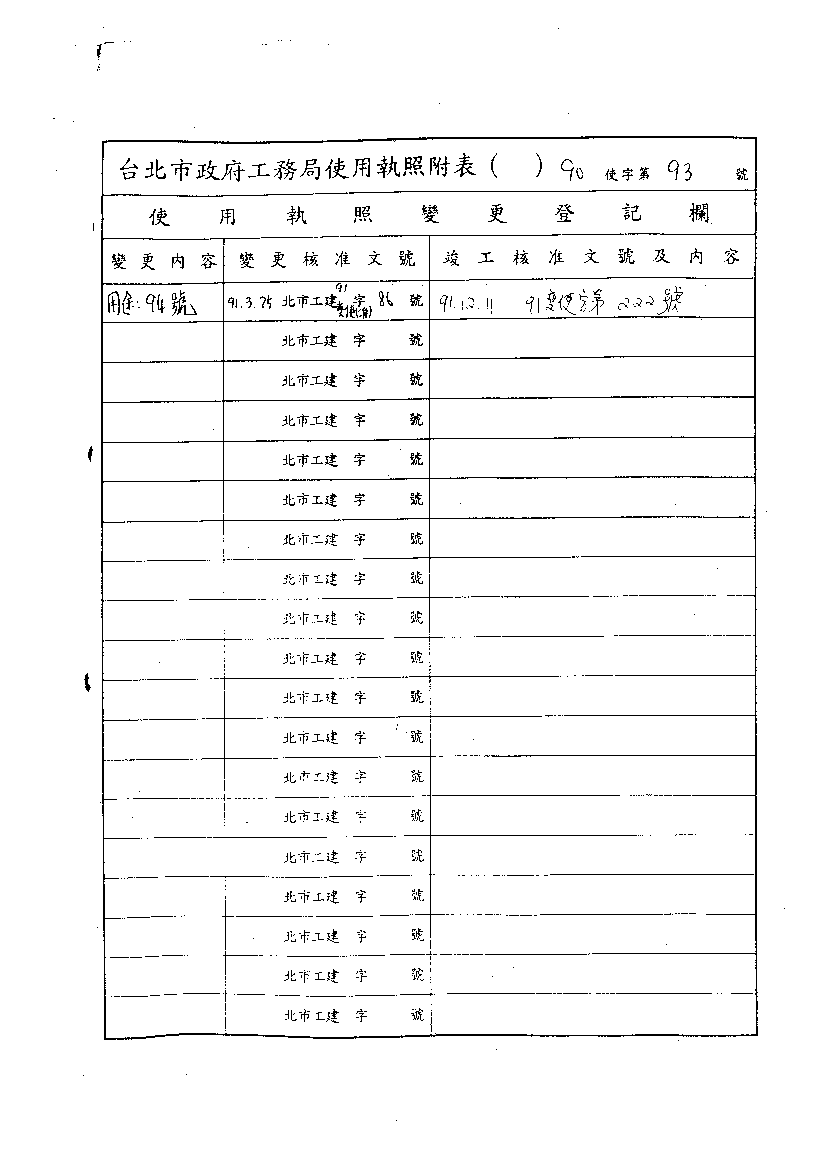 台北市政府工務局使用執照附表（　）90 使字第 93 號
使用執照變更登記欄
變更內容 變更核准文號 竣工核准文號及內容
用途：94號 91.3.25 北市工建 91 字 86 號 91.12.11 91變使字第222號
北市工建 字 號
北市工建 字 號
北市工建 字 號
北市工建 字 號
北市工建 字 號
北市工建 字 號
北市工建 字 號
北市工建 字 號
北市工建 字 號
北市工建 字 號
北市工建 字 號
北市工建 字 號
北市工建 字 號
北市工建 字 號
北市工建 字 號
北市工建 字 號
北市工建 字 號
北市工建 字 號